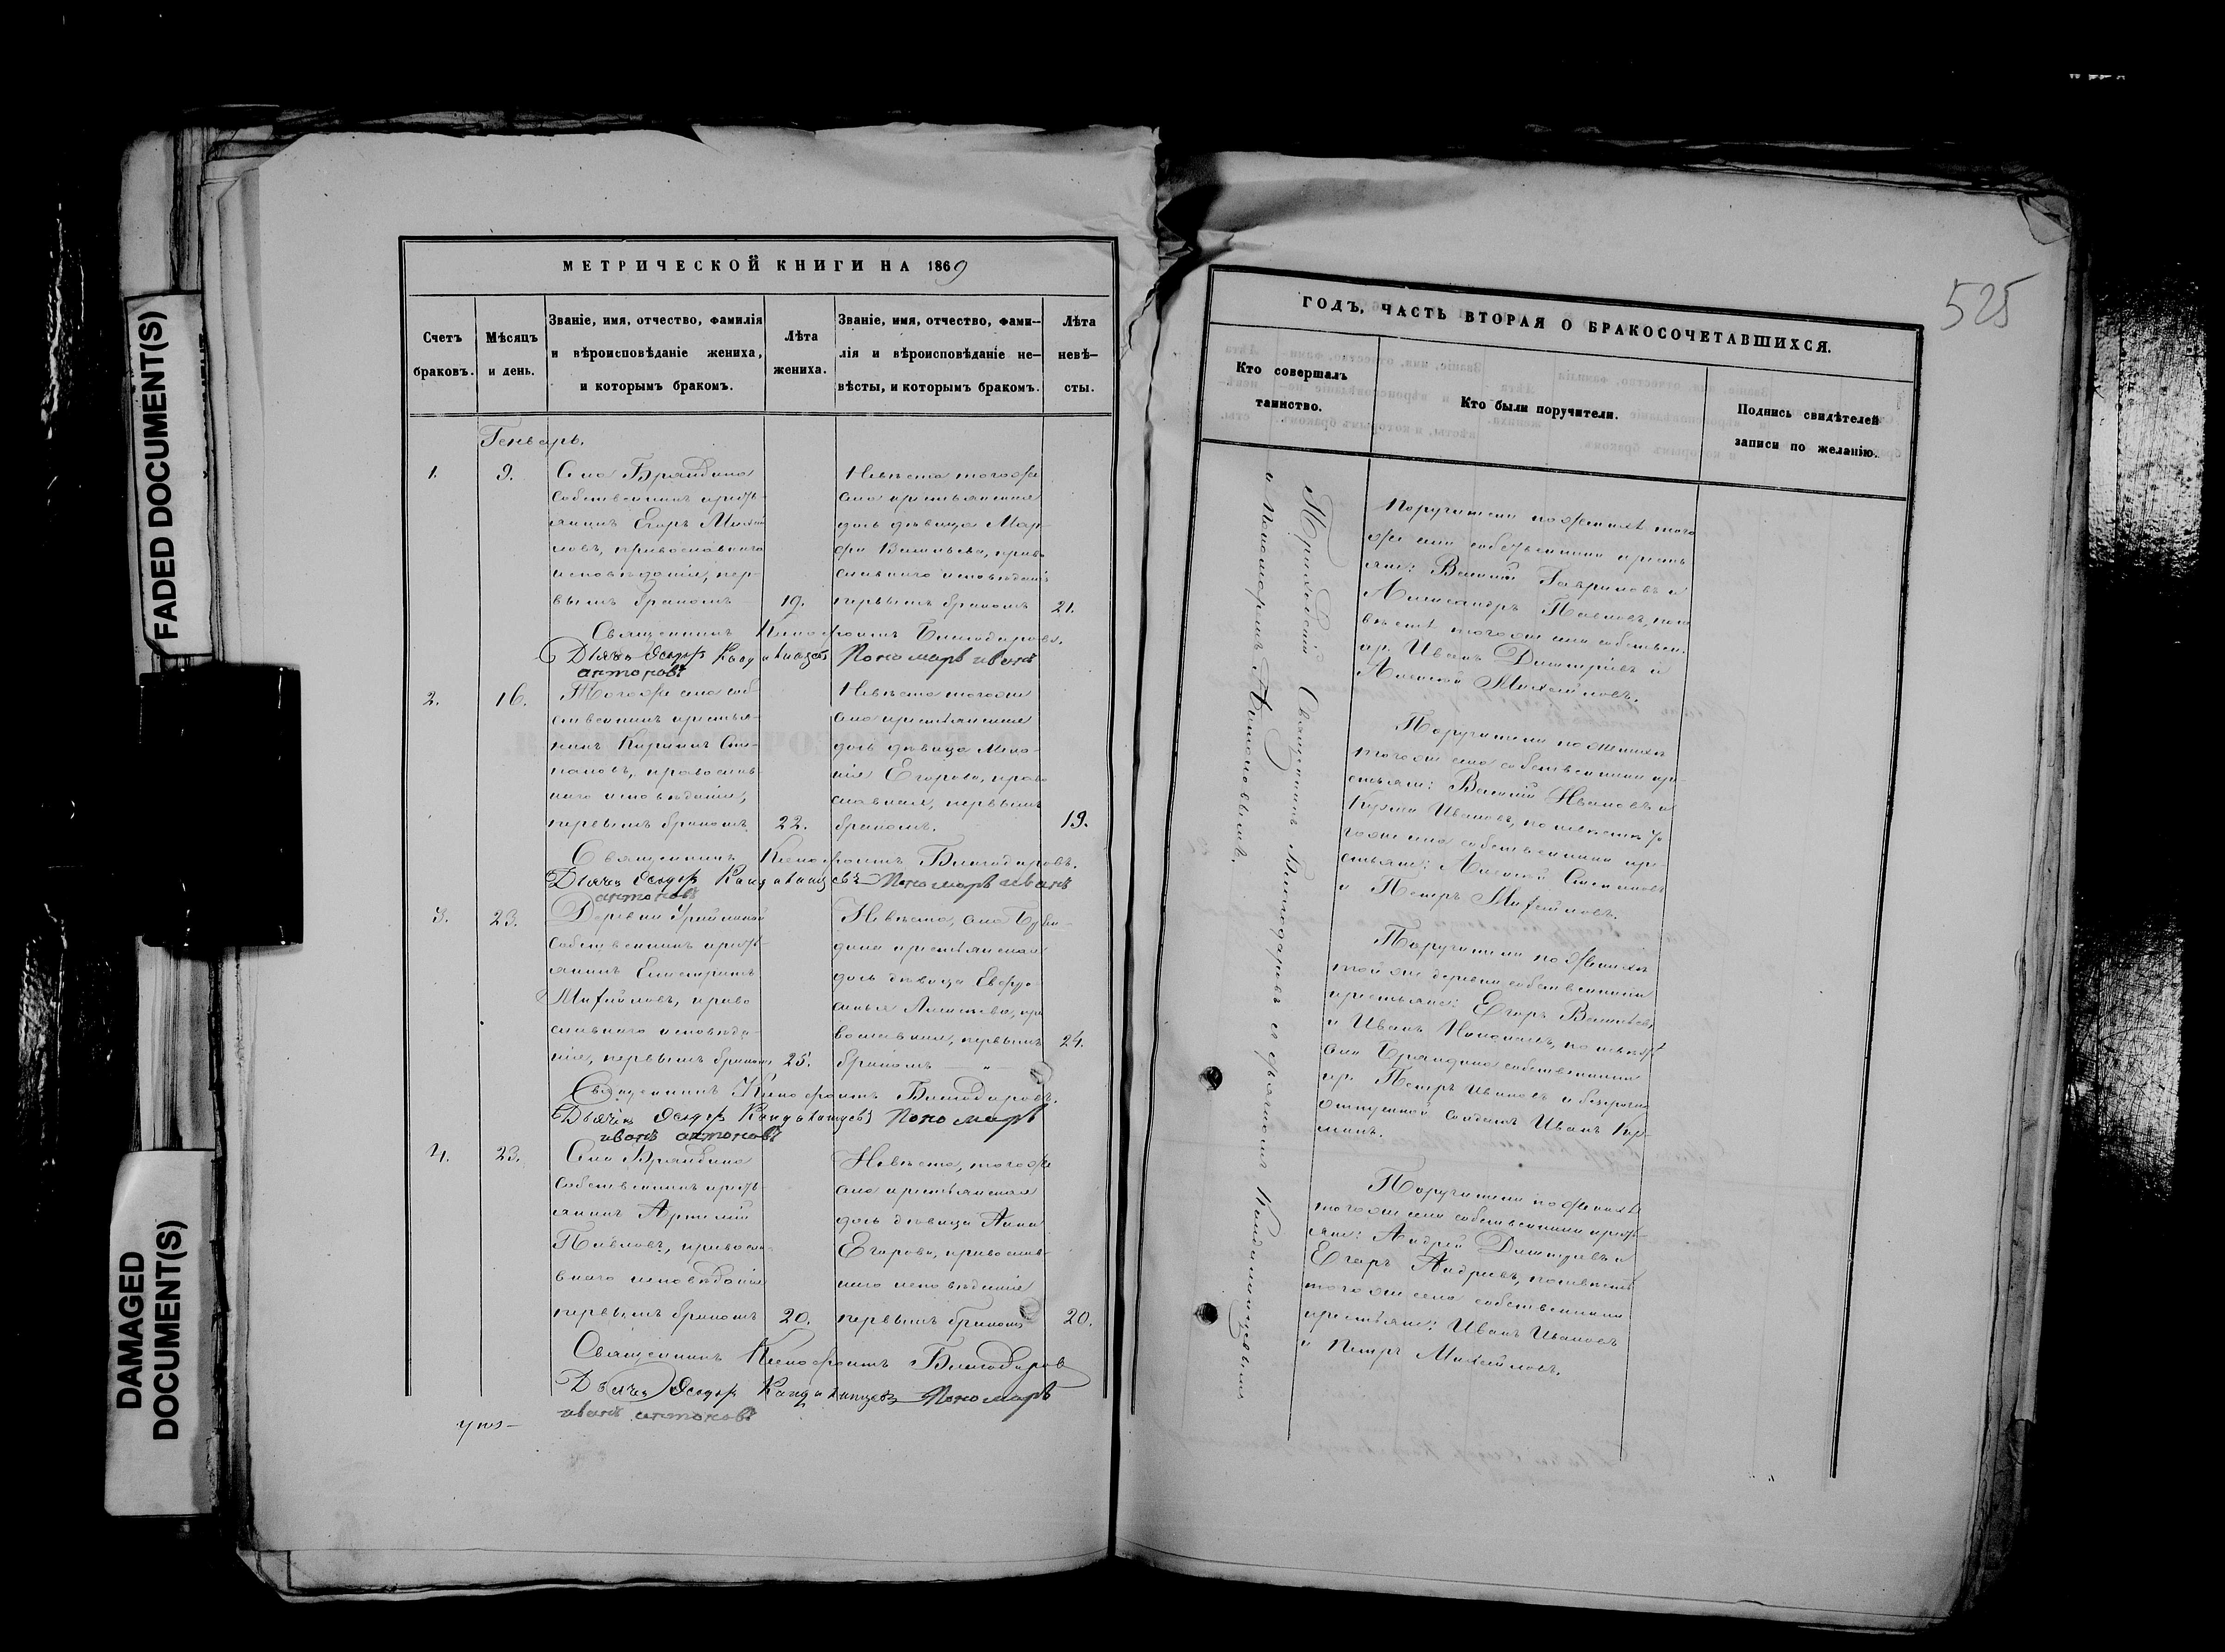 FADED DOCUMENT(S)
DAMAGED
DOCUMENT(S)
МЕТРИЧЕСКОЙ КНИГИ НА 1869
Счетъ
браковъ.
Мѣсяцъ
и день.
Званіе, имя, отчество, фамилія
и вѣроисповѣданіе жениха,
и которымъ бракомъ.
Лѣта
жениха.
Званіе, имя, отчество, фами-
лія и вѣроисповѣданіе не-
вѣсты, и которымъ бракомъ.
Лѣта
невѣ-
сты.
Генварь.
1.
9.
Села
Собственникъ кресть-
янинъ Егоръ Михай
ловъ, православнаго
исповѣданія, пер-
вымъ бракомъ
19.
Невѣста тогоже
села крестьянская
дочь дѣвица Мар-
фа Васильева, право
славнаго исповѣданія
первымъ бракомъ
21.
Священникъ Ксенофонтъ Благодаровъ.
Дьячекъ Ѳедоръ Пономарь иванъ
антоновъ
2.
16.
Тогоже села соб-
ственникъ крестья-
нинъ Кириллъ Сте-
пановъ, православ-
наго исповѣданія,
первымъ бракомъ
22.
Невѣста тогоже
села крестьянская
дочь дѣвица Мела-
нія Егорова, право
славная, первымъ
бракомъ.
19.
Священникъ Ксенофонтъ Благодаровъ.
Дьячекъ Ѳедоръ Пономарь иванъ
антоновъ
3.
23.
Деревни
Собственникъ кресть-
янинъ
Михайловъ, право
славнаго исповѣда-
нія, первымъ бракомъ
25.
Невѣста, села
крестьянская
дочь дѣвица Евдо-
пра
вославная, первымъ
бракомъ
24.
Священникъ Ксенофонтъ Благодаровъ.
Дьячекъ Ѳедоръ Пономарь
иванъ антоновъ
4.
23.
Села
Собственникъ кресть-
янинъ Артемій
Павловъ, правосла-
внаго исповѣданія
первымъ бракомъ
20.
Невѣста, тогоже
села крестьянская
дочь дѣвица Анна
Егорова, православ-
наго исповѣданія
первымъ бракомъ
20.
Священникъ Ксенофонтъ Благодаровъ
Дьячекъ Ѳедоръ Пономарь
иванъ антоновъ
525
ГОДЪ, ЧАСТЬ ВТОРАЯ О БРАКОСОЧЕТАВШИХСЯ.
Кто совершалъ
таинство.
Кто были поручители.
Подпись свидѣтелей
записи по желанію.
Приходскій Священникъ Благодаровъ съ
и Пономаремъ Антоновымъ.
Поручители по женихѣ того
же села собственники кресть
яне: Василій Гавриловъ и
Александръ Павловъ, по не
вѣстѣ тогоже села собствен.
кр. Иванъ Димитріевъ и
Алексѣй Михайловъ.
Поручители по женихѣ
тогоже села собственники кре-
стьяне: Василій Ивановъ и
Ивановъ, по невѣстѣ то
гоже села собственники кре-
стьяне: Алексѣй Степановъ
и Петръ Михайловъ.
Поручители по женихѣ
тойже деревни собственники
крестьяне: Егоръ Васильевъ
и Иванъ по невѣстѣ
села собственники
кр. Петръ Ивановъ и безсрочно
отпускной солдатъ Иванъ Кир-
Поручители по женихѣ
тогоже села собственники кресть-
яне: Андрей Димитріевъ и
Егоръ Андреевъ, по невѣстѣ
тогоже села собственники
крестьяне: Иванъ Ивановъ
и Петръ Михайловъ.